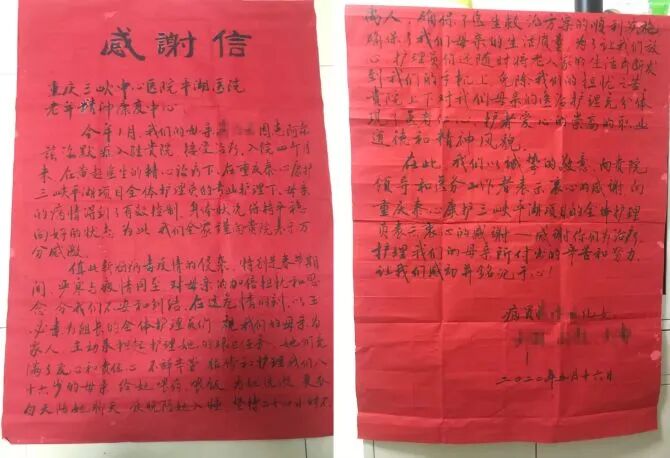 感謝信
重庆三峡中心医院平湖医院
老年精神康复中心
今年1月,我们的母亲 因患阿尔
兹海默症入驻贵院 接受治疗,入院四个月
来,在黄超医生的精心治疗下,在重庆泰心康护
三峡平湖项目全体护理员的专业护理下,母亲
的病情得到了有效控制,身体状况保持平稳
向好的状态,为此,我们全家谨向贵院表示万
分感激
值此新冠病毒疫情的侵袭,特别是春节期
间,严寒与疫情同至,对母亲的加倍担忧和思
念,令我们不安和纠结。在这危情时刻,以王
为组长的全体护理员们,视我们的母亲为
家人,主动承担起护理她的艰巨任务,她们充
满了爱心和责任心,不辞辛劳,陪伴和护理我们八
十六岁的母亲,给她喂药、喂饭,为她洗澡,
白天陪她聊天,夜晚陪她入睡,坚持二十四小时不
离人,确保了医生救治方案的顺利实施
确保了我们母亲的生活质量,为了让我们放
心,护理员们还随时将老人家的生活片断发
到我们的手机上,免除我们的担忧之苦
贵院上下对我们母亲的医治护理充分体
现了医者仁心、护者爱心的崇高的职业
道德和精神风貌。
在此,我们以诚挚的敬意,向贵院
领导和医务工作者表示衷心的感谢,向
重庆泰心康护三峡平湖项目的全体护理
员表示衷心的感谢——感谢你们为治疗、
护理我们的母亲所付出的辛苦和努力,
让我们感动并铭记于心!
病员 儿女
二〇二〇年五月十六日